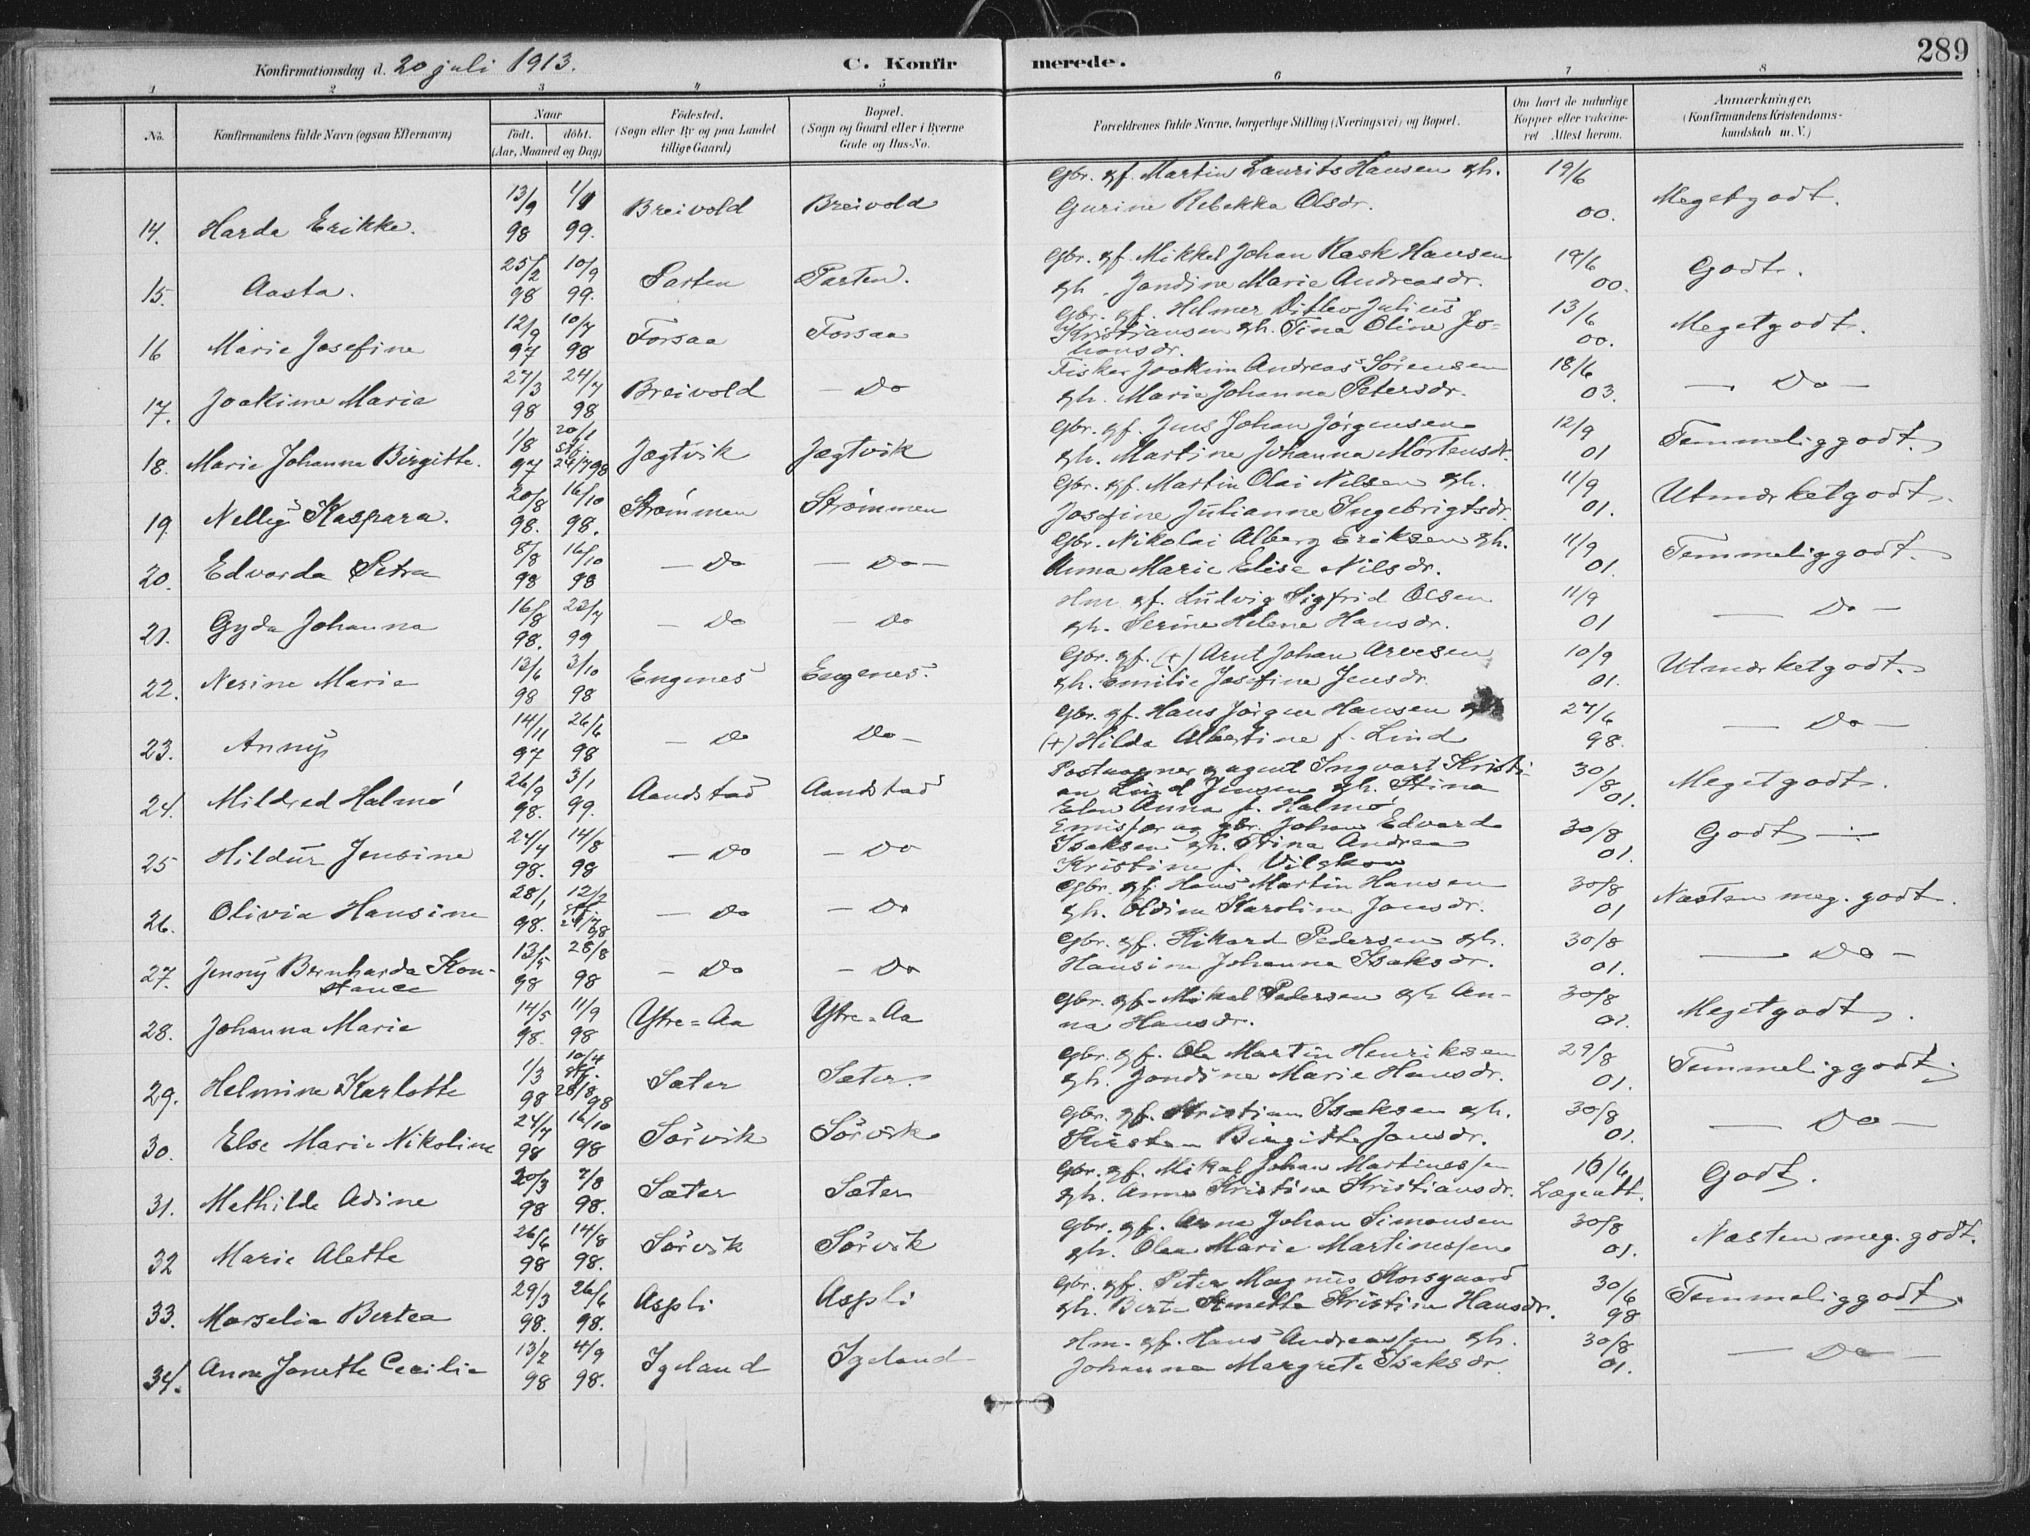 289
Konfirmationsdag d. 20 juli 1913. C. Konfirmerede.
1 2 3 4 5 6 7 8
No. Konfirmandens fulde Navn (ogsaa Efternavn) Naar født. døbt. (Aar, Maaned og Dag) Fødested. (Sogn eller By og paa Landet tillige Gaard) Bopæl. (Sogn og Gaard eller i Byerne Gade og Hus-No. Forældrenes fulde Navne, borgerlige Stilling (Næringsvei) og Bopæl. Om havt de naturlige Kopper eller vaccineret Attest herom. Anmærkninger. (Konfirmandens Kristendomskundskab m. V.)
14. Harda Erikke. 13/9 98 99. Breivold Breivold Gbr. gf. Martin Laurits Hansen gh.
Gurine Rebekka Olsdr. 19/6 00. Megetgodt.
15. Aasta. 25/2 98 10/9 99. Parten Parten. Gbr. gf. Mikkel Johan Rask Hansen
gh. Jondine Marie Andreasdr. 19/6 00. Godt.
16 Marie Josefine 12/9 97 10/7 98 Forsaa Forsaa Gbr. gf. Helmer Ditlev Julius
Kristiansen gh. Tina Oline Jo-
hansdr. 13/6 00. Megetgodt.
17. Joakime Marie 27/3 98 24/7 98 Breivold — Do Fisker Joakim Andreas Sørensen
gh. Marie Johanna Petersdr. 18/6 03. — Do —
18. Marie Johanna Birgitte. 1/8 97 20/1 Stf. 24/7 98 Jægtvik Jægtvik Gbr. gf. Jens Johan Jørgensen
gh. Martine Johanna Mortensdr. 12/9 01 Temmeliggodt.
19. Nelly Kaspara. 20/8 98. 16/10 98. Strømmen Strømmen Gbr. gf. Martin Olai Nilsen gh.
Josefine Julianne Ingebrigtsdr. 11/9 01. Utmærketgodt.
20. Edvarda Petra 8/8 98 16/10 98 — Do — Do — Gbr. Nikolai Alberg Eriksen gh.
Anna Marie Elise Nilsdr. 11/9 01. Temmeliggodt.
21. Gyda Johanna 16/8 98. 23/7 99 — Do — Do Hm. gf. Ludvig Sigfrid Olsen
gh. Serine Helene Hansdr. 11/9 01 — Do —
22. Nerine Marie 13/6 98 3/10 98 Engenes Engenes. Gbr. gf. (+) Arnt Johan Arvesen
gh. Emilie Josefine Jensdr. 10/9 01. Utmærketgodt.
23. Anny 14/11 97 26/6 98 — Do Do — Gbr. gf. Hans Jørgen Hansen
(+) Hilda Albertine f. Lind 27/6 98. — Do —
24. Mildred Halmø 26/9 98. 3/1 99. Aandstad Aandstad Postaapner & agent Ingvart Kristi-
an Lind Jensen gh. Stina
Elen Anna f. Halmø 30/8 01. Megetgodt.
25 Hildur Jensine 24/4 98. 14/8 98 — Do — Do Emissær og gbr. Johan Edvard
Isaksen gh. Stina Andrea
Kristine f. Vilskow 30/8 01. Godt —
26. Olivia Hansine 28/1 98. 12/2 Stf. 28/8 98 — Do — Do Gbr. gf. Hans Martin Hansen
gh. Oldine Karoline Jonsdr. 30/8 01 Næsten meg. godt.
27. Jenny Bernharda Kon-
stance 13/5 98 28/8 98 — Do — Do Gbr. gf. Rikard Pedersen gh.
Hansine Johanna Isaksdr. 30/8 01. — Do —
28. Johanna Marie 14/5 98. 11/9 98 Ytre-Aa Ytre-Aa Gbr. gf. Mikal Pedersen gh. An-
na Hansdr. 30/8 01. Megetgodt.
29. Helmine Karlotte 1/3 98 10/4 Stf. 28/8 98 Sæter Sæter Gbr. gf. Ole Martin Henriksen
gh. Jondine Marie Hansdr. 29/8 01. Temmeliggodt.
30. Else Marie Nikoline 24/7 98 16/10 98 Sørvik Sørvik Gbr. gf. Kristian Isaksen gh.
Kirsten Birgitte Jonsdr. 30/8 01. — Do —
31. Mathilde Adine 20/3 98 7/8 98. Sæter Sæter Gbr. gf. Mikal Johan Martinessen
gh. Anne Kristine Kristiansdr. 16/6 Lægeatt. Godt.
32 Marie Alette 26/6 98 14/8 98. Sørvik Sørvik Gbr. gf. Arne Johan Simonsen
gh. Olea Marie Martinessen 30/8 01. Næsten meg. godt.
33. Marselia Bertea 29/3 98. 26/6 98. Aspli Aspli Gbr. gf. Peter Magnus Korsgaard
gh. Kristine Hansdr. 30/6 98 Temmeliggodt.
34. Anna Jonette Cecilie 13/2 98 4/9 98. Igeland Igeland Hm. gf. Hans Andreassen gh.
Johanna Margrete Isaksdr. 30/8 01. — Do —